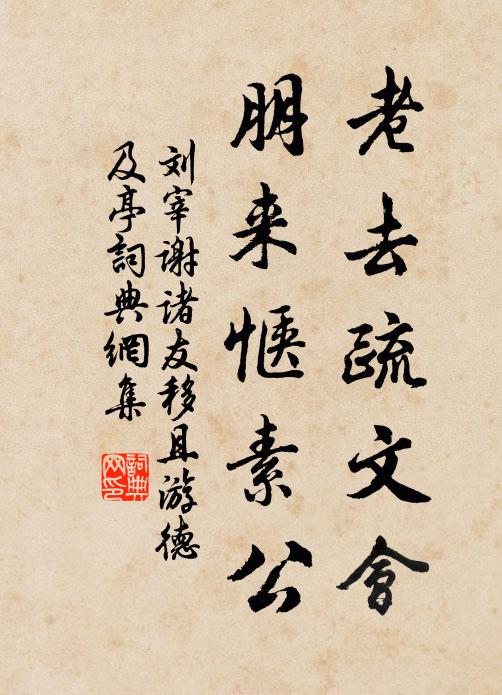 老去疏文會
朋来惬素公
刘宰谢诸友移具游德
及亭詞典網集
詞典
网印